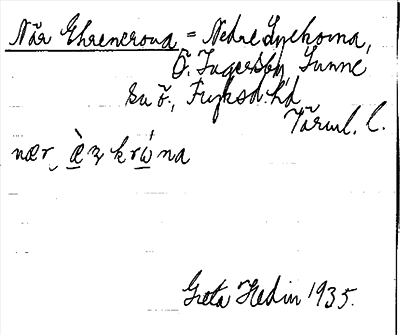 När Ehrencrona = Nedre Lyckorna,
Ö. Fagersby, Sunne
sn ö., Fryksd. hd
Värml. l.
nær
Greta Hedin 1935.